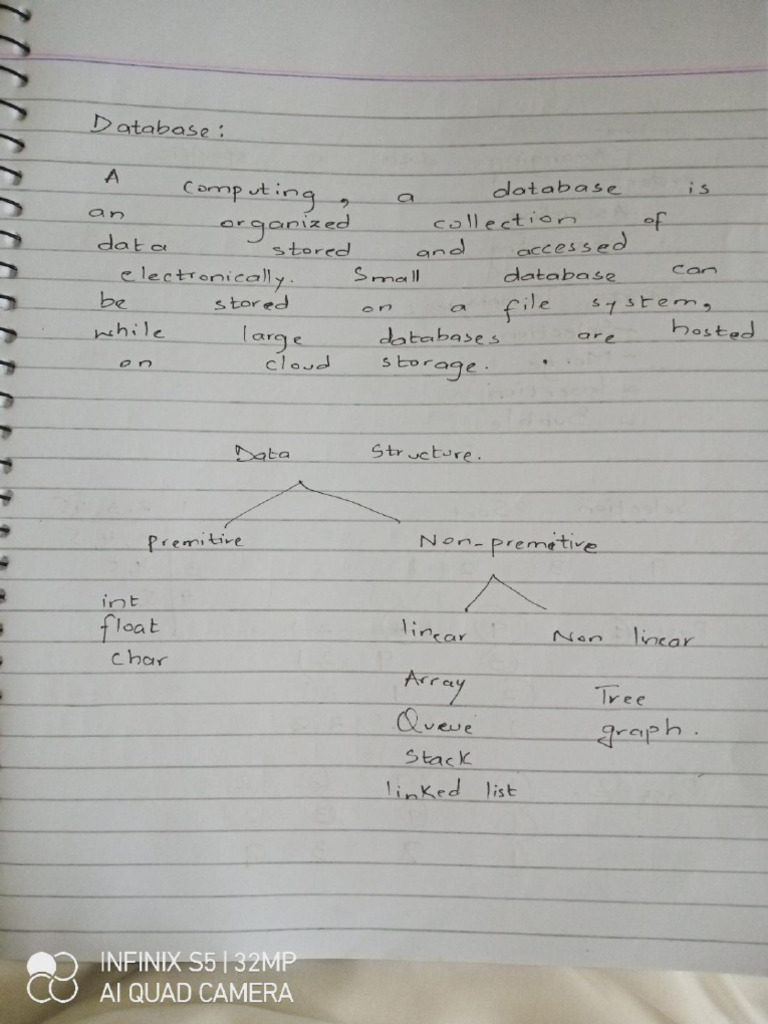 Database:
A computing, a database is
an organized collection of
data stored and accessed
electronically. Small database can
be stored on a file system,
while large databases are hosted
on cloud storage. .
Data Structure.
Premitive Non-premetive
int
float
char
linear Non linear
Array Tree
Queue graph.
Stack
linked list
INFINIX S5 | 32MP
AI QUAD CAMERA